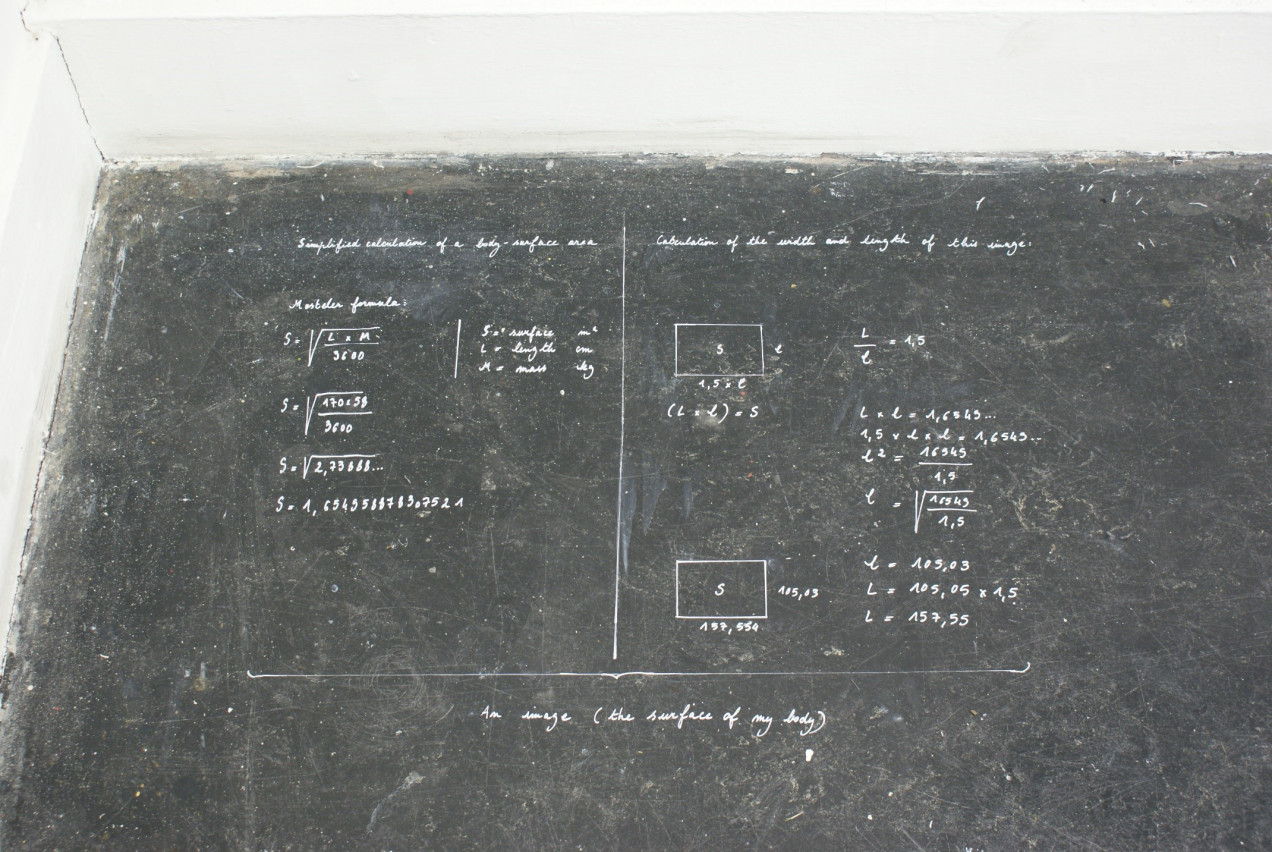 Simplified calculation of a body-surface area
Mosteler formula:
S = √(L x M / 3600)
S = surface m²
L = length cm
M = mass kg
S = √(170x58 / 3600)
S = √2,73888...
S = 1,654958878307521
Calculation of the width and length of this image:
S
l
1,5 x l
L / l = 1,5
(L x l) = S
L x l = 1,6549...
1,5 x l x l = 1,6549...
l² = 16549 / 1,5
l = √(16549 / 1,5)
l = 105,03
S
105,03
157,554
L = 105,05 x 1,5
L = 157,55
An image (the surface of my body)